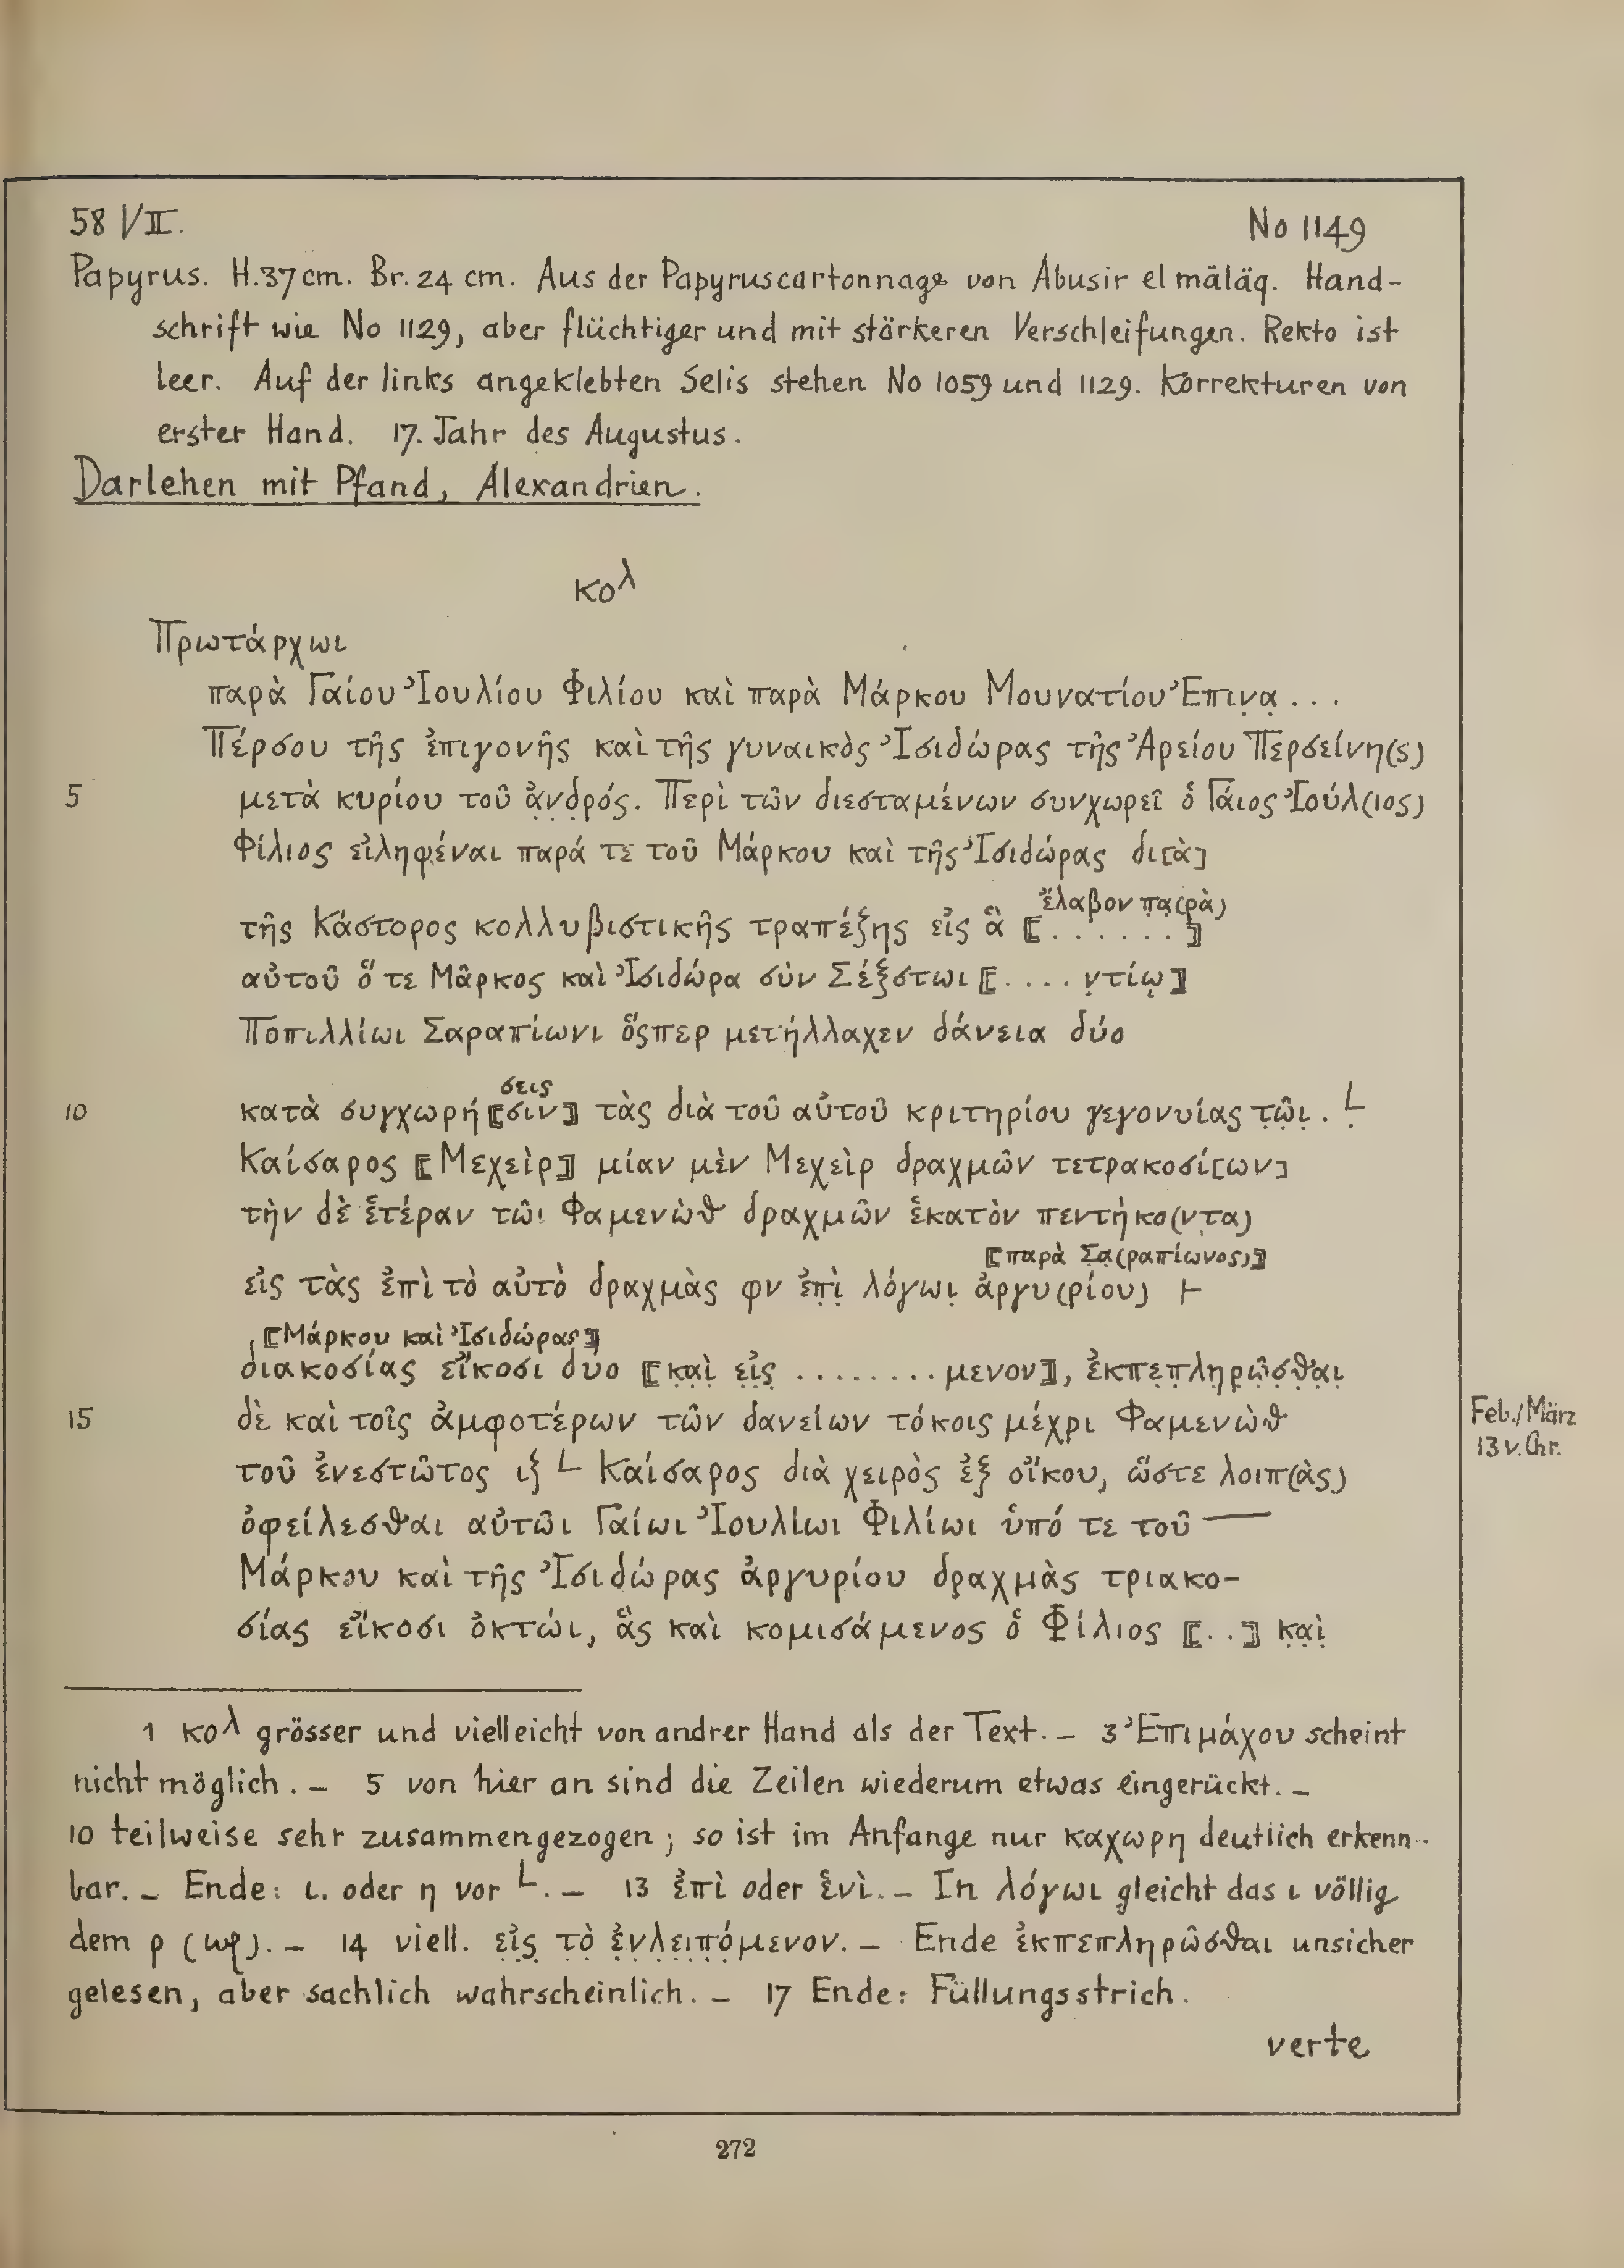 58 VII. No 1149
Papyrus. H. 37 cm. Br. 24 cm. Aus der Papyruscartonnage von Abusir el mäläq. Hand-
schrift wie No 1129, aber flüchtiger und mit stärkeren Verschleifungen. Rekto ist
leer. Auf der links angeklebten Selis stehen No 1059 und 1129. Korrekturen von
erster Hand. 17. Jahr des Augustus.
Darlehen mit Pfand, Alexandrien.
κολ
Πρωτάρχωι
παρὰ Γαίου Ἰουλίου Φιλίου καὶ παρὰ Μάρκου Μουνατίου Ἐπιν̣α̣...
Πέρσου τῆς ἐπιγονῆς καὶ τῆς γυναικὸς Ἰσιδώρας τῆς Ἀρείου Περσείνη(ς)
5 μετὰ κυρίου τοῦ ἀ̣ν̣δ̣ρός. Περὶ τῶν διεσταμένων συνχωρεῖ ὁ Γάιος Ἰούλ(ιος)
Φίλιος εἰληφέναι παρά τε τοῦ Μάρκου καὶ τῆς Ἰσιδώρας δι[ὰ]
ἔλαβον π̣α̣(ρὰ)
τῆς Κάστορος κολλυβιστικῆς τραπέξης εἰς ἃ ⟦......⟧
αὐτοῦ ὅ τε Μᾶρκος καὶ Ἰσιδώρα σὺν Σέξστωι ⟦....ν̣τίῳ̣⟧
Ποπιλλίωι Σαραπίωνι ὅσπερ μετήλλαχεν δάνεια δύο
σεις
10 κατὰ συγχωρή⟦σιν⟧ τὰς διὰ τοῦ αὐτοῦ κριτηρίου γεγονυίας τ̣ῶ̣ι̣ . Ḷ
Καίσαρος ⟦Μεχεὶρ⟧ μίαν μὲν Μεχεὶρ δραχμῶν τετρακοσί[ων]
τὴν δὲ ἑτέραν τῶι Φαμενὼθ δραχμῶν ἑκατὸν πεντήκο(ντα)
⟦παρὰ Σ̣α̣(ραπίωνος)⟧
εἰς τὰς ἐπὶ τὸ αὐτὸ δραχμὰς φν ἐπ̣ὶ̣ λόγωι̣ ἀργυ(ρίου) Ⱶ
⟦Μάρκου καὶ Ἰσιδώρας⟧
διακοσίας εἴκοσι δύο ⟦κ̣α̣ὶ̣ ε̣ἰ̣ς̣ ........μενον⟧, ἐκπε̣π̣λη̣ρ̣ῶ̣σ̣θ̣α̣ι̣
15 δὲ καὶ τοῖς ἀμφοτέρων τῶν δανείων τόκοις μέχρι Φαμενὼθ
Feb./März
13 v. Chr.
τοῦ ἐνεστῶτος ιξ L Καίσαρος διὰ χειρὸς ἐξ οἴκου, ὥστε λοιπ(ὰς)
ὀφείλεσθαι αὐτῶι Γαίωι Ἰουλίωι Φιλίωι ὑπό τε τοῦ —
Μάρκου καὶ τῆς Ἰσιδώρας ἀργυρίου δραχμὰς τριακο-
σίας εἴκοσι ὀκτώι, ἃς καὶ κομισάμενος ὁ Φίλιος ⟦..⟧ κ̣α̣ὶ̣
1 κολ grösser und vielleicht von andrer Hand als der Text. – 3 Ἐπιμάχου scheint
nicht möglich. – 5 von hier an sind die Zeilen wiederum etwas eingerückt. –
10 teilweise sehr zusammengezogen; so ist im Anfange nur καχωρη deutlich erkenn-
bar. – Ende: ι. oder η vor L. – 13 ἐπὶ oder ἑνὶ. – In λόγωι gleicht das ι völlig
dem ρ (ωρ). – 14 viell. ε̣ἰ̣ς̣ τ̣ὸ̣ ἐ̣ν̣λ̣ε̣ι̣π̣ό̣μενον. – Ende ἐκπεπληρῶσθαι unsicher
gelesen, aber sachlich wahrscheinlich. – 17 Ende: Füllungsstrich.
verte
272